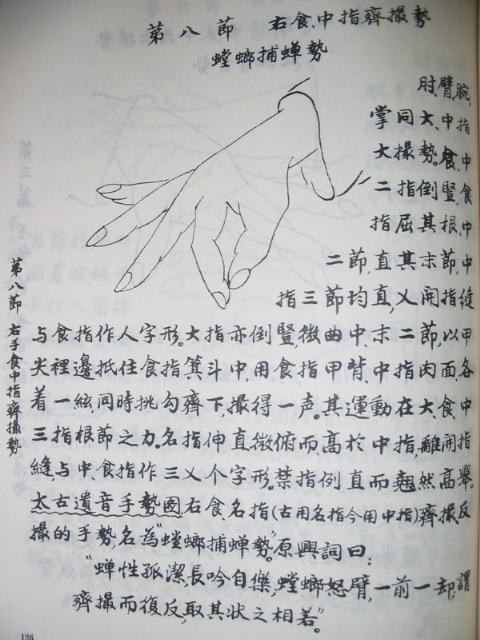 第八節 右食、中指齊撮勢
螳螂捕蟬勢
肘、臂、腕、
掌同大、中指
大撮勢。食、中
二指倒豎,食
指屈其根、中
二節,直其末節,中
指三節均直,乂開指縫
与食指作人字形。大指亦倒豎,微曲中、末二節,以甲
尖裡邊抵住食指箕斗中,用食指甲背、中指肉面,各
着一絃,同時挑勾齊下,撮得一声。其運動在大、食、中
三指根節之力。名指伸直微俯而高於中指,離開指
縫,与中、食指作三乂个字形。禁指例直而翹然高舉。
太古遺音手勢圖右食名指(古用名指今用中指)齊撮、反
撮的手勢,名為“螳螂捕蟬勢”。原興詞曰:
“蟬性孤潔長吟自傑,螳螂怒臂,一前一却,謂
齊撮而復反,取其狀之相若。”
第八節 右手食中指齊撮勢
126